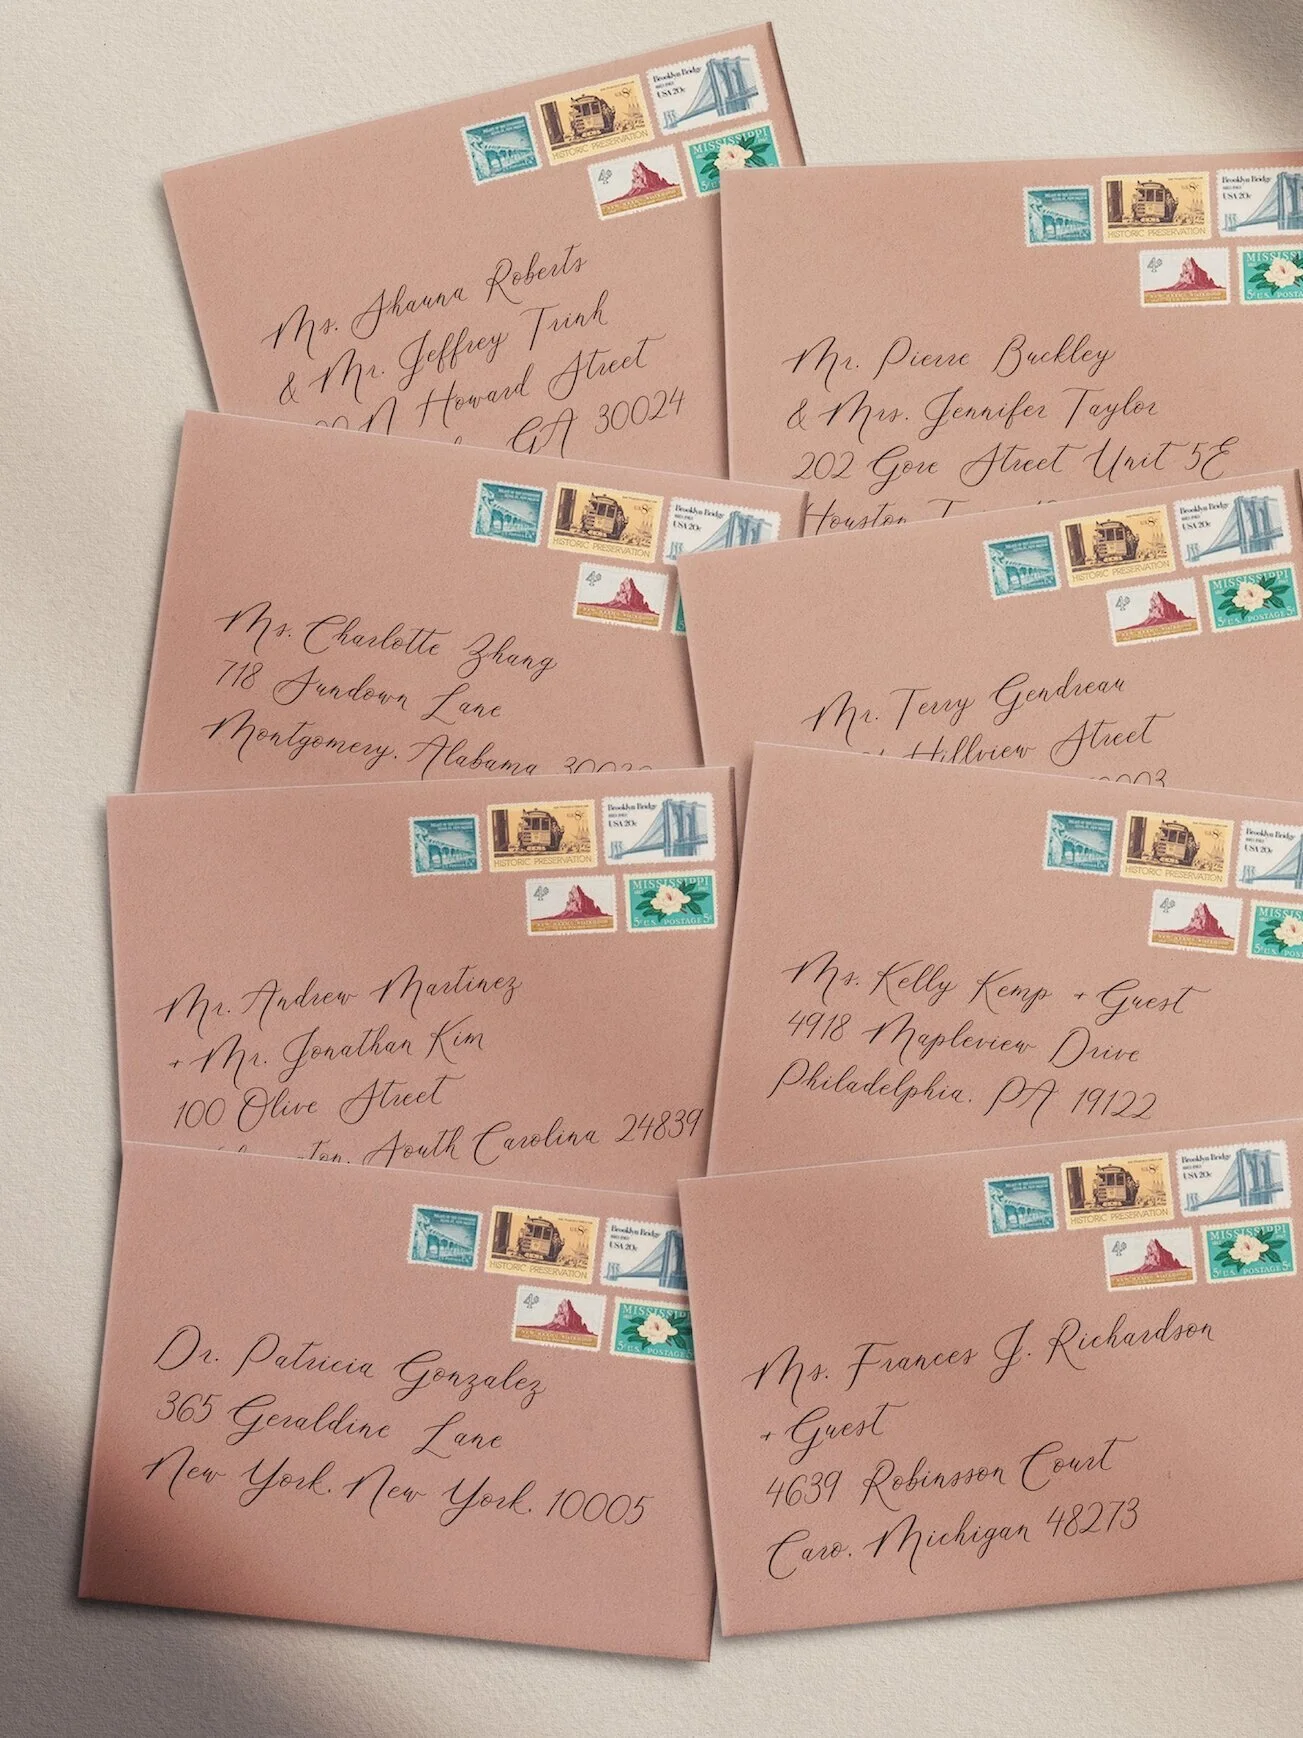 Brooklyn Bridge
1883-1983
USA 20c
HISTORIC PRESERVATION
4¢
MISSISSIPPI
Ms. Shauna Roberts
& Mr. Jeffrey Trinh
N Howard Street
GA 30024
Brooklyn Bridge
1883-1983
USA 20c
HISTORIC PRESERVATION
4¢
MISSISSIPPI
5¢ U.S. POSTA
Mr. Pierre Buckley
& Mrs. Jennifer Taylor
202 Gore Street Unit 5E
Houston
Brooklyn Bridge
1883-1983
USA 20c
HISTORIC PRESERVATION
4¢
Ms. Charlotte Zhang
718 Sundown Lane
Montgomery, Alabama
Brooklyn Bridge
1883-1983
USA 20c
HISTORIC PRESERVATION
4¢
MISSISSIPPI
5¢ U.S. POSTAGE 5¢
Mr. Terry Gendreau
Hillview Street
Brooklyn Bridge
1883-1983
USA 20c
HISTORIC PRESERVATION
4¢
MISSISSIPPI
5¢ U.S. POSTAGE 5¢
Mr. Andrew Martinez
+ Mr. Jonathan Kim
100 Olive Street
South Carolina 24839
Brooklyn Bridge
1883-1983
USA 20c
HISTORIC PRESERVATION
4¢
Ms. Kelly Kemp + Guest
4918 Mapleview Drive
Philadelphia, PA 19122
Brooklyn Bridge
1883-1983
USA 20c
HISTORIC PRESERVATION
4¢
MISSISSIPPI
5¢ U.S. POSTAGE
Dr. Patricia Gonzalez
365 Geraldine Lane
New York, New York, 10005
Brooklyn Bridge
1883-1983
USA 20c
HISTORIC PRESERVATION
4¢
MISSISSIPPI
5¢ U.S. POSTAGE 5¢
Ms. Frances J. Richardson
+ Guest
4639 Robinsson Court
Caro, Michigan 48273